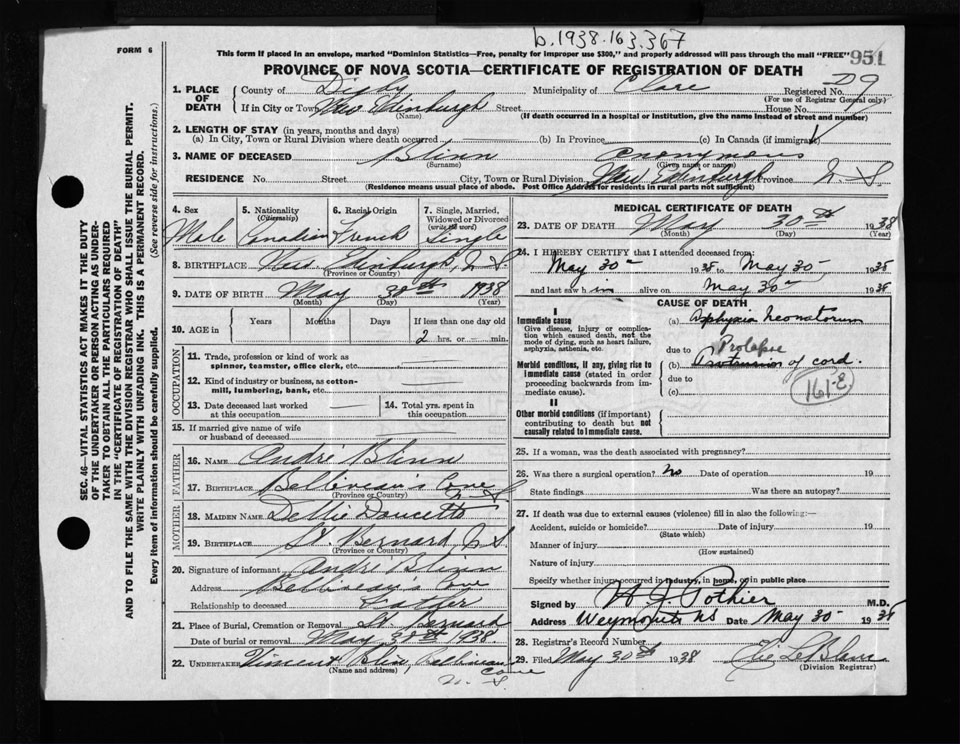 b.1938.163.367
FORM 6
This form if placed in an envelope, marked "Dominion Statistics—Free, penalty for improper use $300," and properly addressed will pass through the mail "FREE"
951
PROVINCE OF NOVA SCOTIA—CERTIFICATE OF REGISTRATION OF DEATH
1. PLACE OF DEATH County of Digby Municipality of Clare Registered No. D9
(For use of Registrar General only)
If in City or Town New Edinburgh Street House No.
(Name) (If death occurred in a hospital or institution, give the name instead of street and number)
2. LENGTH OF STAY (in years, months and days)
(a) In City, Town or Rural Division where death occurred (b) In Province (c) In Canada (if immigrant)
3. NAME OF DECEASED Blinn Anonymous
(Surname) (Given name or names)
RESIDENCE No. Street City, Town or Rural Division New Edinburgh Province N. S.
(Residence means usual place of abode. Post Office Address for residents in rural parts not sufficient)
4. Sex 5. Nationality (Citizenship) 6. Racial Origin 7. Single, Married, Widowed or Divorced (write the word)
Male Canadian French Single
8. BIRTHPLACE New Edinburgh, N. S.
(Province or Country)
9. DATE OF BIRTH May 30th 1938
(Month) (Day) (Year)
10. AGE in Years Months Days If less than one day old
2 hrs. or min.
OCCUPATION
11. Trade, profession or kind of work as spinner, teamster, office clerk, etc.
12. Kind of industry or business, as cotton-mill, lumbering, bank, etc.
13. Date deceased last worked at this occupation 14. Total yrs. spent in this occupation
15. If married give name of wife or husband of deceased
FATHER
16. NAME André Blinn
17. BIRTHPLACE Belliveau's Cove N S
(Province or Country)
MOTHER
18. MAIDEN NAME Dellie Doucette
19. BIRTHPLACE St. Bernard, N S
(Province or Country)
20. Signature of informant André Blinn
Address Belliveau's Cove
Relationship to deceased Father
21. Place of Burial, Cremation or Removal St. Bernard
Date of burial or removal May 30th 1938.
22. UNDERTAKER Vincent Belliveau Cove
(Name and address) N. S
MEDICAL CERTIFICATE OF DEATH
23. DATE OF DEATH May 30th 1938
(Month) (Day) (Year)
24. I HEREBY CERTIFY that I attended deceased from:
May 30 1938 to May 30 1938
and last saw him alive on May 30 1938
CAUSE OF DEATH
I
Immediate cause (a) Asphyxia Neonatorum
Give disease, injury or complication which caused death, not the mode of dying, such as heart failure, asphyxia, asthenia, etc.
due to Prolapse
Morbid conditions, if any, giving rise to immediate cause (stated in order proceeding backwards from immediate cause).
(b) Protrusion of cord.
due to
(c)
161-E
II
Other morbid conditions (if important) contributing to death but not causally related to immediate cause.
25. If a woman, was the death associated with pregnancy?
26. Was there a surgical operation? No Date of operation 19
State findings Was there an autopsy?
27. If death was due to external causes (violence) fill in also the following:—
Accident, suicide or homicide? Date of injury 19
(State which)
Manner of injury
(How sustained)
Nature of injury
Specify whether injury occurred in industry, in home, or in public place
Signed by H J Pothier M.D.
Address Weymouth NS Date May 30 1938
28. Registrar's Record Number
29. Filed May 30th 1938 LeBlanc
(Division Registrar)
SEC. 46—VITAL STATISTICS ACT MAKES IT THE DUTY
OF THE UNDERTAKER OR PERSON ACTING AS UNDER-
TAKER TO OBTAIN ALL THE PARTICULARS REQUIRED
IN THE "CERTIFICATE OF REGISTRATION OF DEATH"
AND TO FILE THE SAME WITH THE DIVISION REGISTRAR WHO SHALL ISSUE THE BURIAL PERMIT.
WRITE PLAINLY WITH UNFADING INK. THIS IS A PERMANENT RECORD.
Every item of information should be carefully supplied. (See reverse side for instructions.)